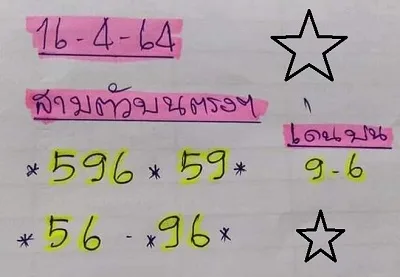 16-4-64
สามตัวบนตรงๆ
เด่นบน
*596*59*
9-6
*56-*96*